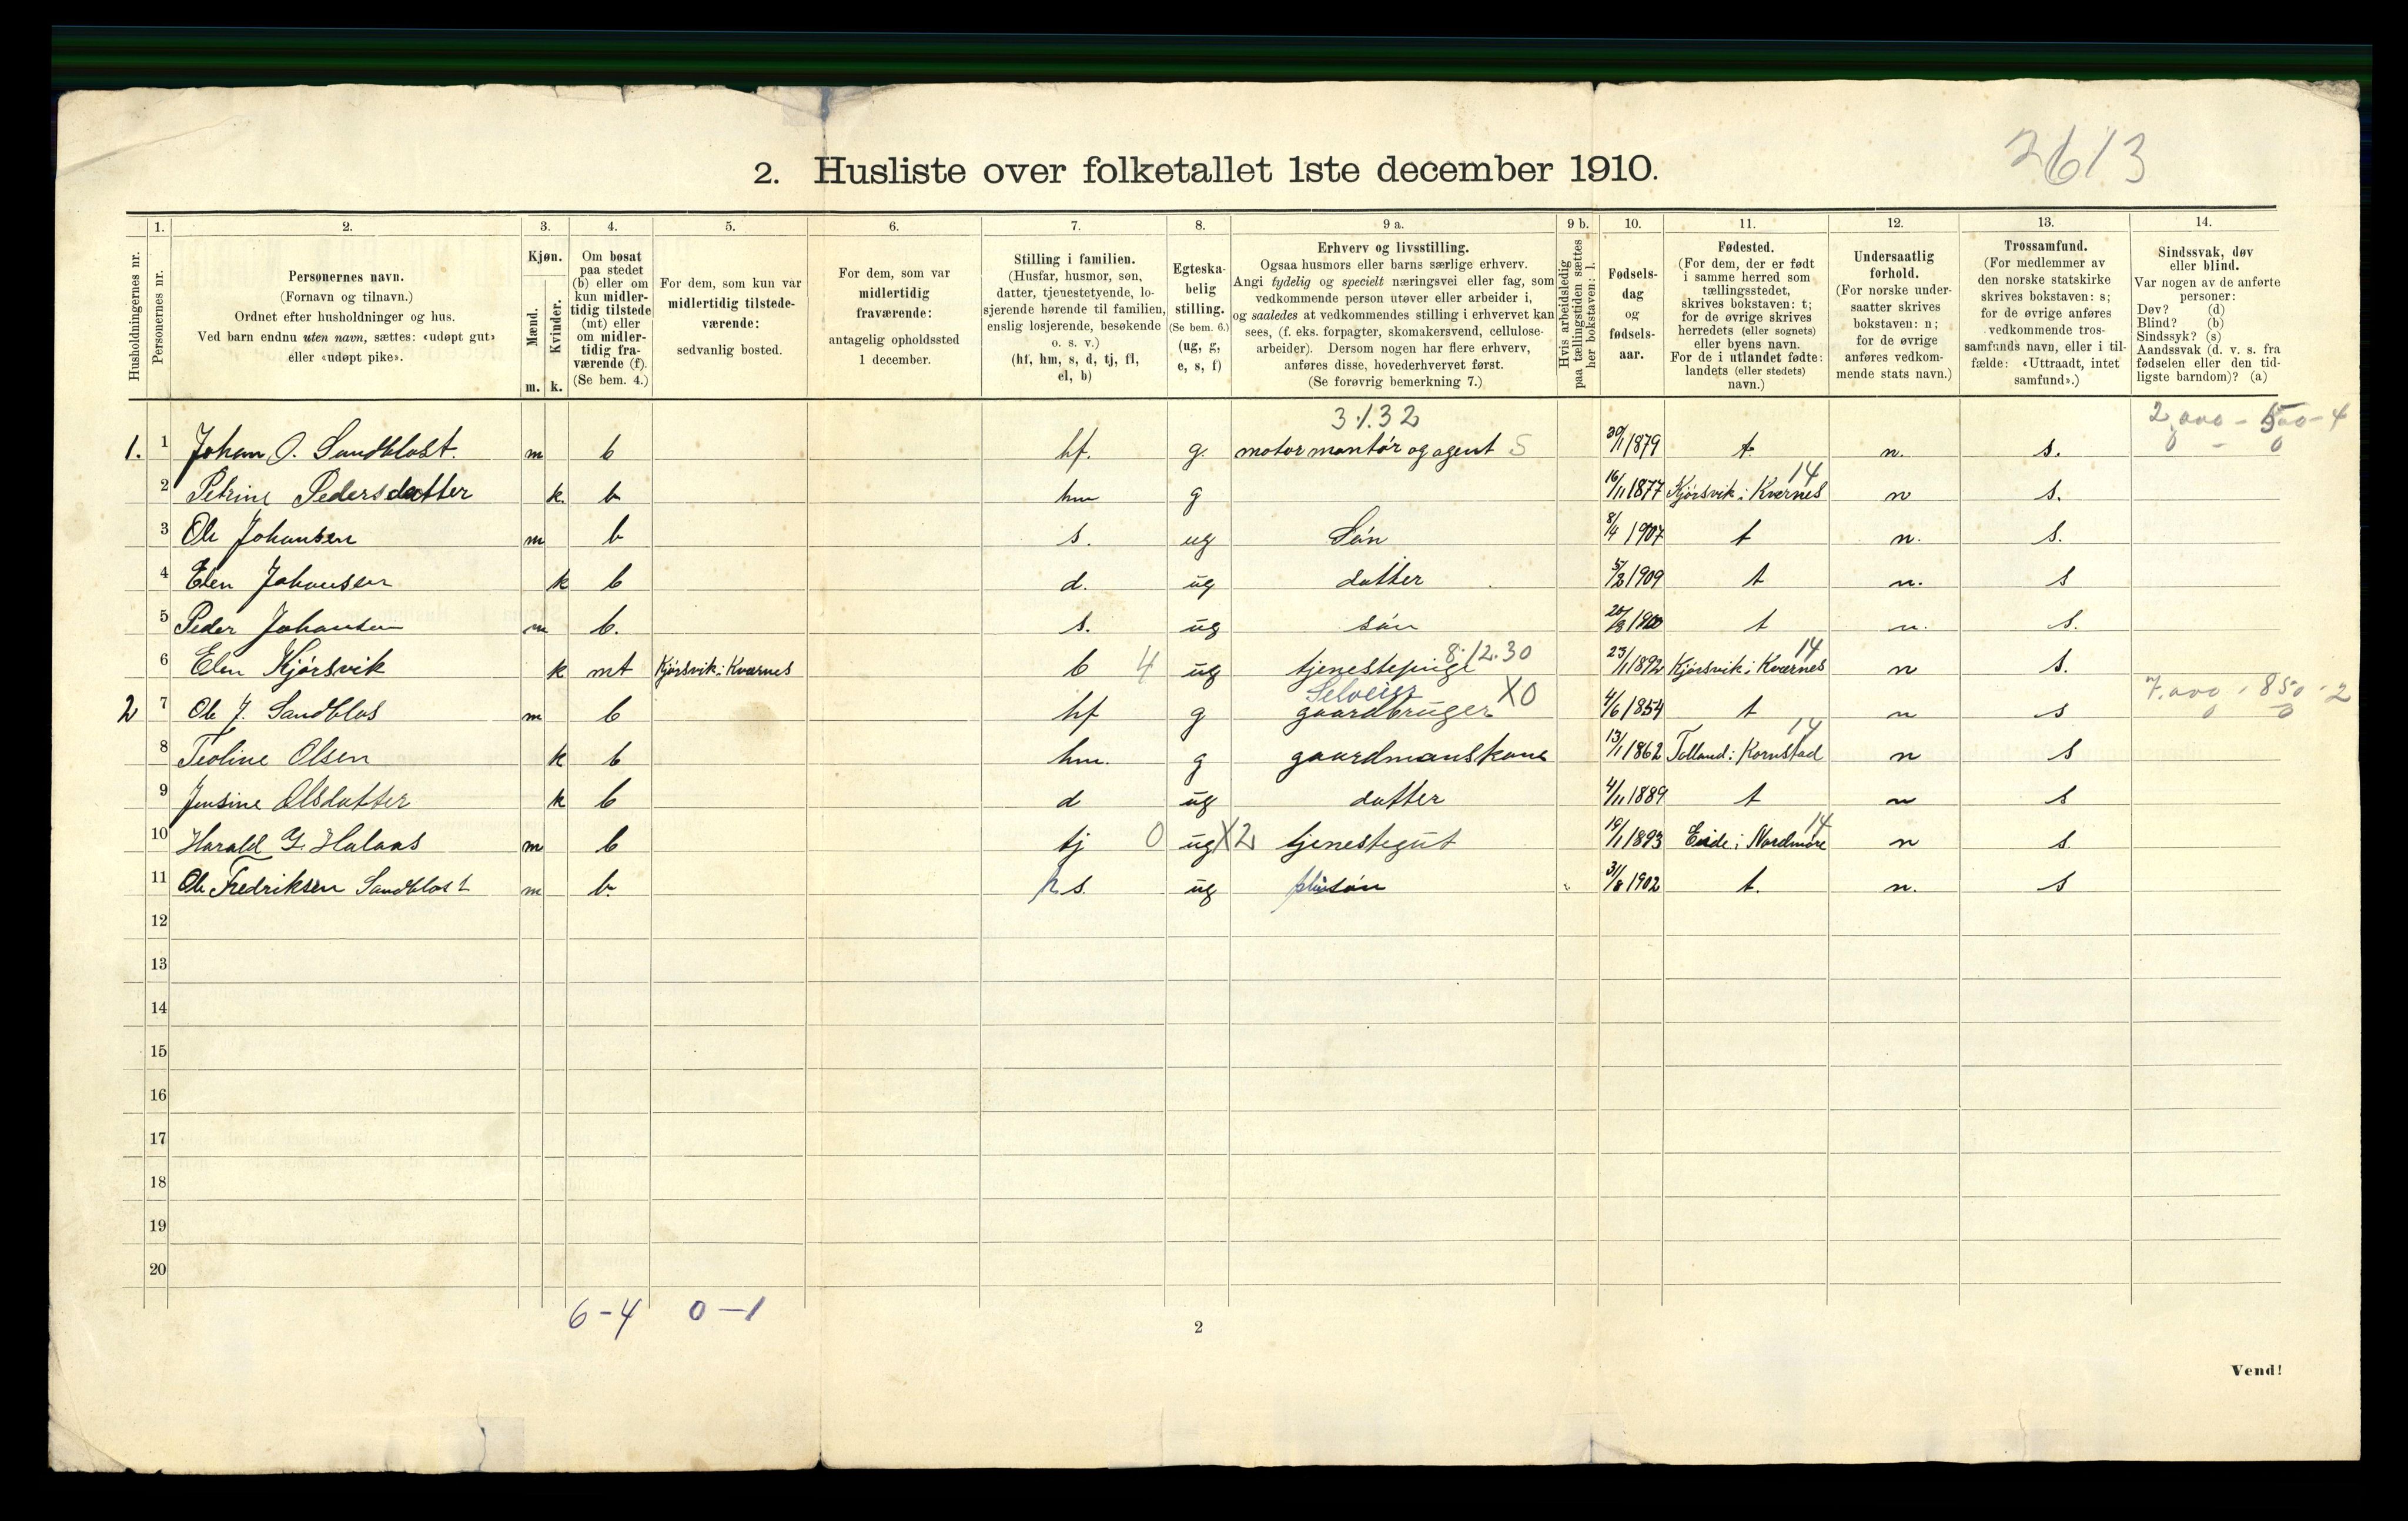 2613
2. Husliste over folketallet 1ste december 1910.
Husholdningernes nr.
1.
Personernes nr.
2.
Personernes navn.
(Fornavn og tilnavn.)
Ordnet efter husholdninger og hus.
Ved barn endnu uten navn, sættes: «udøpt gut»
eller «udøpt pike».
3.
Kjøn.
Mænd.
Kvinder.
m. k.
4.
Om bosat
paa stedet
(b) eller om
kun midler-
tidig tilstede
(mt) eller
om midler-
tidig fra-
værende (f).
(Se bem. 4.)
5.
For dem, som kun var
midlertidig tilstede-
værende:
sedvanlig bosted.
6.
For dem, som var
midlertidig
fraværende:
antagelig opholdssted
1 december.
7.
Stilling i familien.
(Husfar, husmor, søn,
datter, tjenestetyende, lo-
sjerende hørende til familien,
enslig losjerende, besøkende
o. s. v.)
(hf, hm, s, d, tj, fl,
el, b)
8.
Egteska-
belig
stilling.
(Se bem. 6.)
(ug, g,
e, s, f)
9 a.
Erhverv og livsstilling.
Ogsaa husmors eller barns særlige erhverv.
Angi tydelig og specielt næringsvei eller fag, som
vedkommende person utøver eller arbeider i,
og saaledes at vedkommendes stilling i erhvervet kan
sees, (f. eks. forpagter, skomakersvend, cellulose-
arbeider). Dersom nogen har flere erhverv,
anføres disse, hovederhvervet først.
(Se forøvrig bemerkning 7.)
9 b.
Hvis arbeidsledig
paa tællingstiden sættes
her bokstaven: l.
10.
Fødsels-
dag
og
fødsels-
aar.
11.
Fødested.
(For dem, der er født
i samme herred som
tællingsstedet,
skrives bokstaven: t;
for de øvrige skrives
herredets (eller sognets)
eller byens navn.
For de i utlandet fødte:
landets (eller stedets)
navn.)
12.
Undersaatlig
forhold.
(For norske under-
saatter skrives
bokstaven: n;
for de øvrige
anføres vedkom-
mende stats navn.)
13.
Trossamfund.
(For medlemmer av
den norske statskirke
skrives bokstaven: s;
for de øvrige anføres
vedkommende tros-
samfunds navn, eller i til-
fælde: «Uttraadt, intet
samfund».)
14.
Sindssvak, døv
eller blind.
Var nogen av de anførte
personer:
Døv? (d)
Blind? (b)
Sindssyk? (s)
Aandssvak (d. v. s. fra
fødselen eller den tid-
ligste barndom)? (a)
3.1.32 2,000 - 500 - 4
1. 1 Johan O. Sandblost. m b hf. g. motor montör og agent 5 30/1 1879 t. n. s. 0 - 0
2 Petrine Pedersdatter k. b hm g 16/11 1877 Kjörsvik i Kvernes 14 n s.
3 Ole Johansen m b s. ug Sön 8/4 1907 t n. s.
4 Elen Johansen k b d. ug datter 5/2 1909 t n. s
5 Peder Johansen m b. s. ug sön 20/8 1900 t n. s.
6 Elen Kjörsvik k mt Kjörsvik i Kværnes b 4 ug tjenestepige 8.12.30 23/1 1892 Kjörsvik i Kværnes 14 n s.
Selveier X0 7,000 - 850 - 2
2 7 Ole J. Sandblos m b hf g gaardbruger 4/6 1854 t n s 0 0
8 Teoline Olsen k b hm. g gaardmanskone 13/1 1862 Tolland i Kornstad 14 n s
9 Jensine Olsdatter k b d ug datter 4/11 1889 t n s
10 Harald G. Halaas m b tj 0 ug X2 tjenestegut 19/1 1893 Eide i Nordmøre 14 n s.
11 Ole Fredriksen Sandblost m b. s. ug sön 31/8 1902 t. n. s
12
13
14
15
16
17
18
19
20
6-4 0-1
2
Vend!